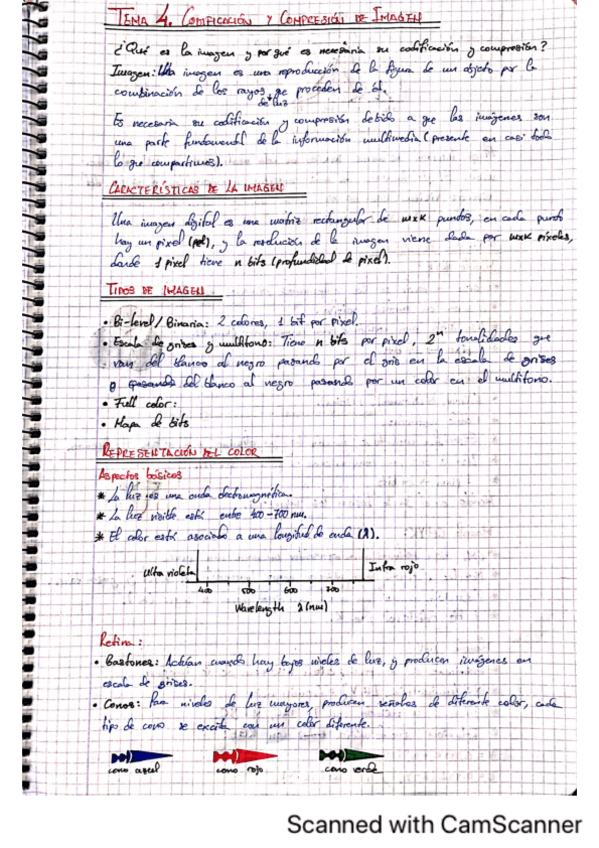 TEMA 4. CODIFICACIÓN Y COMPRESIÓN DE IMAGEN
¿Qué es la imagen y por qué es necesaria su codificación y compresión?
Imagen: Una imagen es una reproducción de la figura de un objeto por la
combinación de los rayos que proceden de él.
de luz
Es necesaria su codificación y compresión debido a que las imágenes son
una parte fundamental de la información multimedia (presente en casi todo
lo que compartimos).
CARACTERÍSTICAS DE LA IMAGEN
Una imagen digital es una matriz rectangular de mxk puntos, en cada punto
hay un pixel (pel), y la resolución de la imagen viene dada por mxk pixeles,
donde 1 pixel tiene n bits (profundidad de pixel).
TIPOS DE IMAGEN
• Bi-level / Binaria: 2 colores, 1 bit por pixel.
• Escala de grises y multitono: Tiene n bits por pixel, 2^n tonalidades que
van del blanco al negro pasando por el gris en la escala de grises
o pasando del blanco al negro pasando por un color en el multitono.
• Full color:
• Mapa de bits
REPRESENTACIÓN DEL COLOR
Aspectos básicos
* La luz es una onda electromagnética.
* La luz visible está entre 400-700 nm.
* El color está asociado a una longitud de onda (λ).
Ultra violeta
Infra rojo
400 500 600 700
Wavelength λ (nm)
Retina:
• Bastones: Actúan cuando hay bajos niveles de luz, y producen imágenes en
escala de grises.
• Conos: Para niveles de luz mayores, producen señales de diferente color, cada
tipo de cono se excita con un color diferente.
cono azul cono rojo cono verde
Scanned with CamScanner